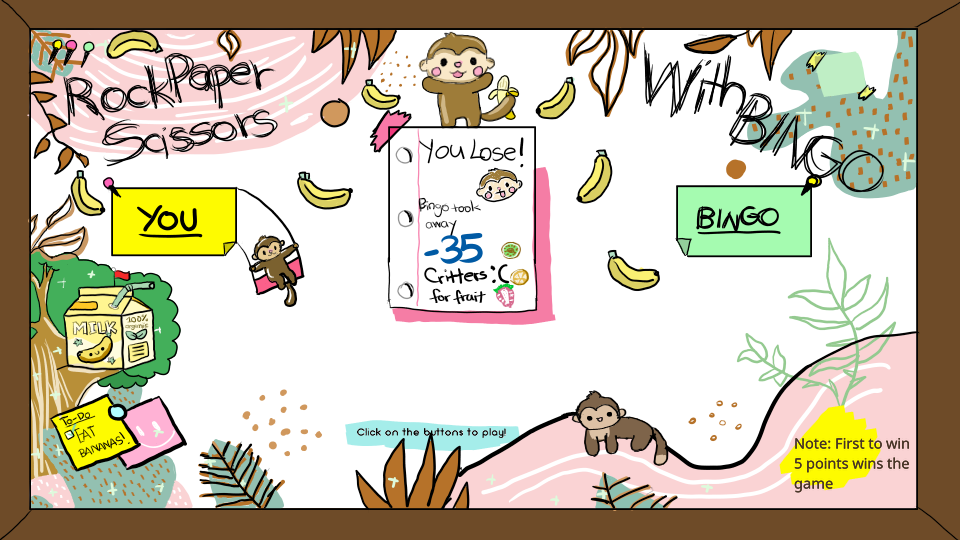 RockPaper
Scissors
With BINGO
You Lose!
Bingo took
away
-35
Critters :C
for fruit
YOU
BINGO
MILK
100%
organic
To-Do
EAT
BANANAS!.
Click on the buttons to play!
Note: First to win
5 points wins the
game